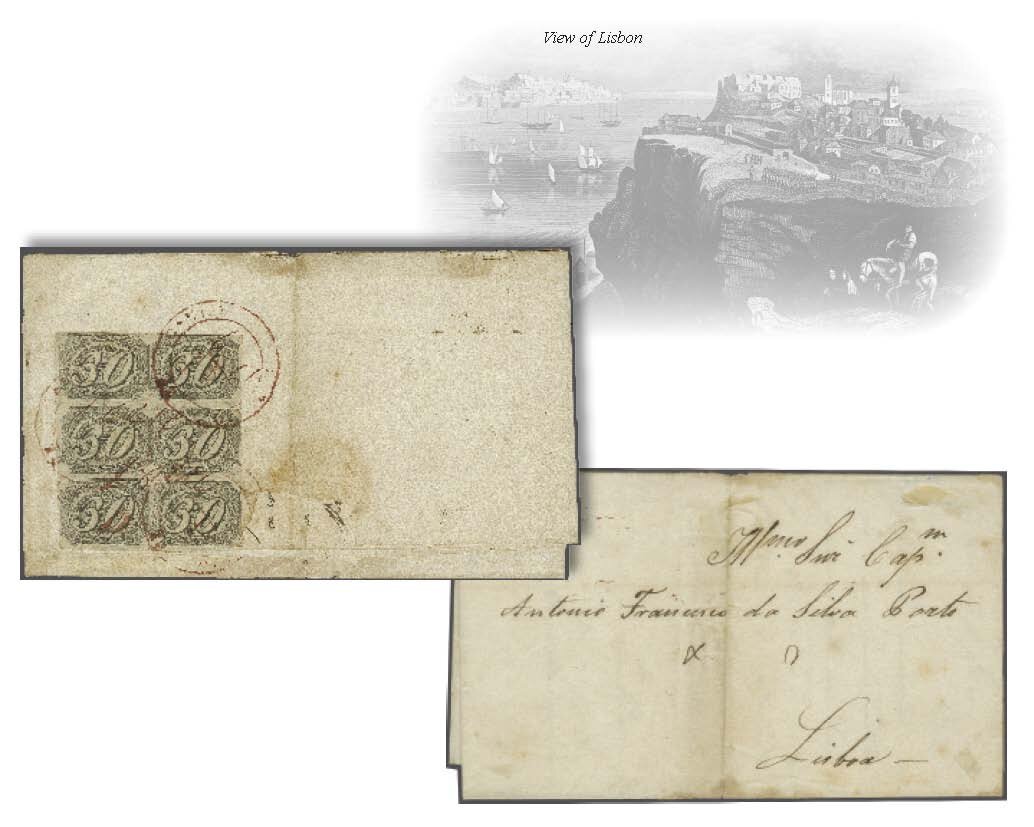 View of Lisbon
30 30
30 30
30 30
Illmo Snr Capm
Antonio Francisco da Silva Porto
Lisboa —